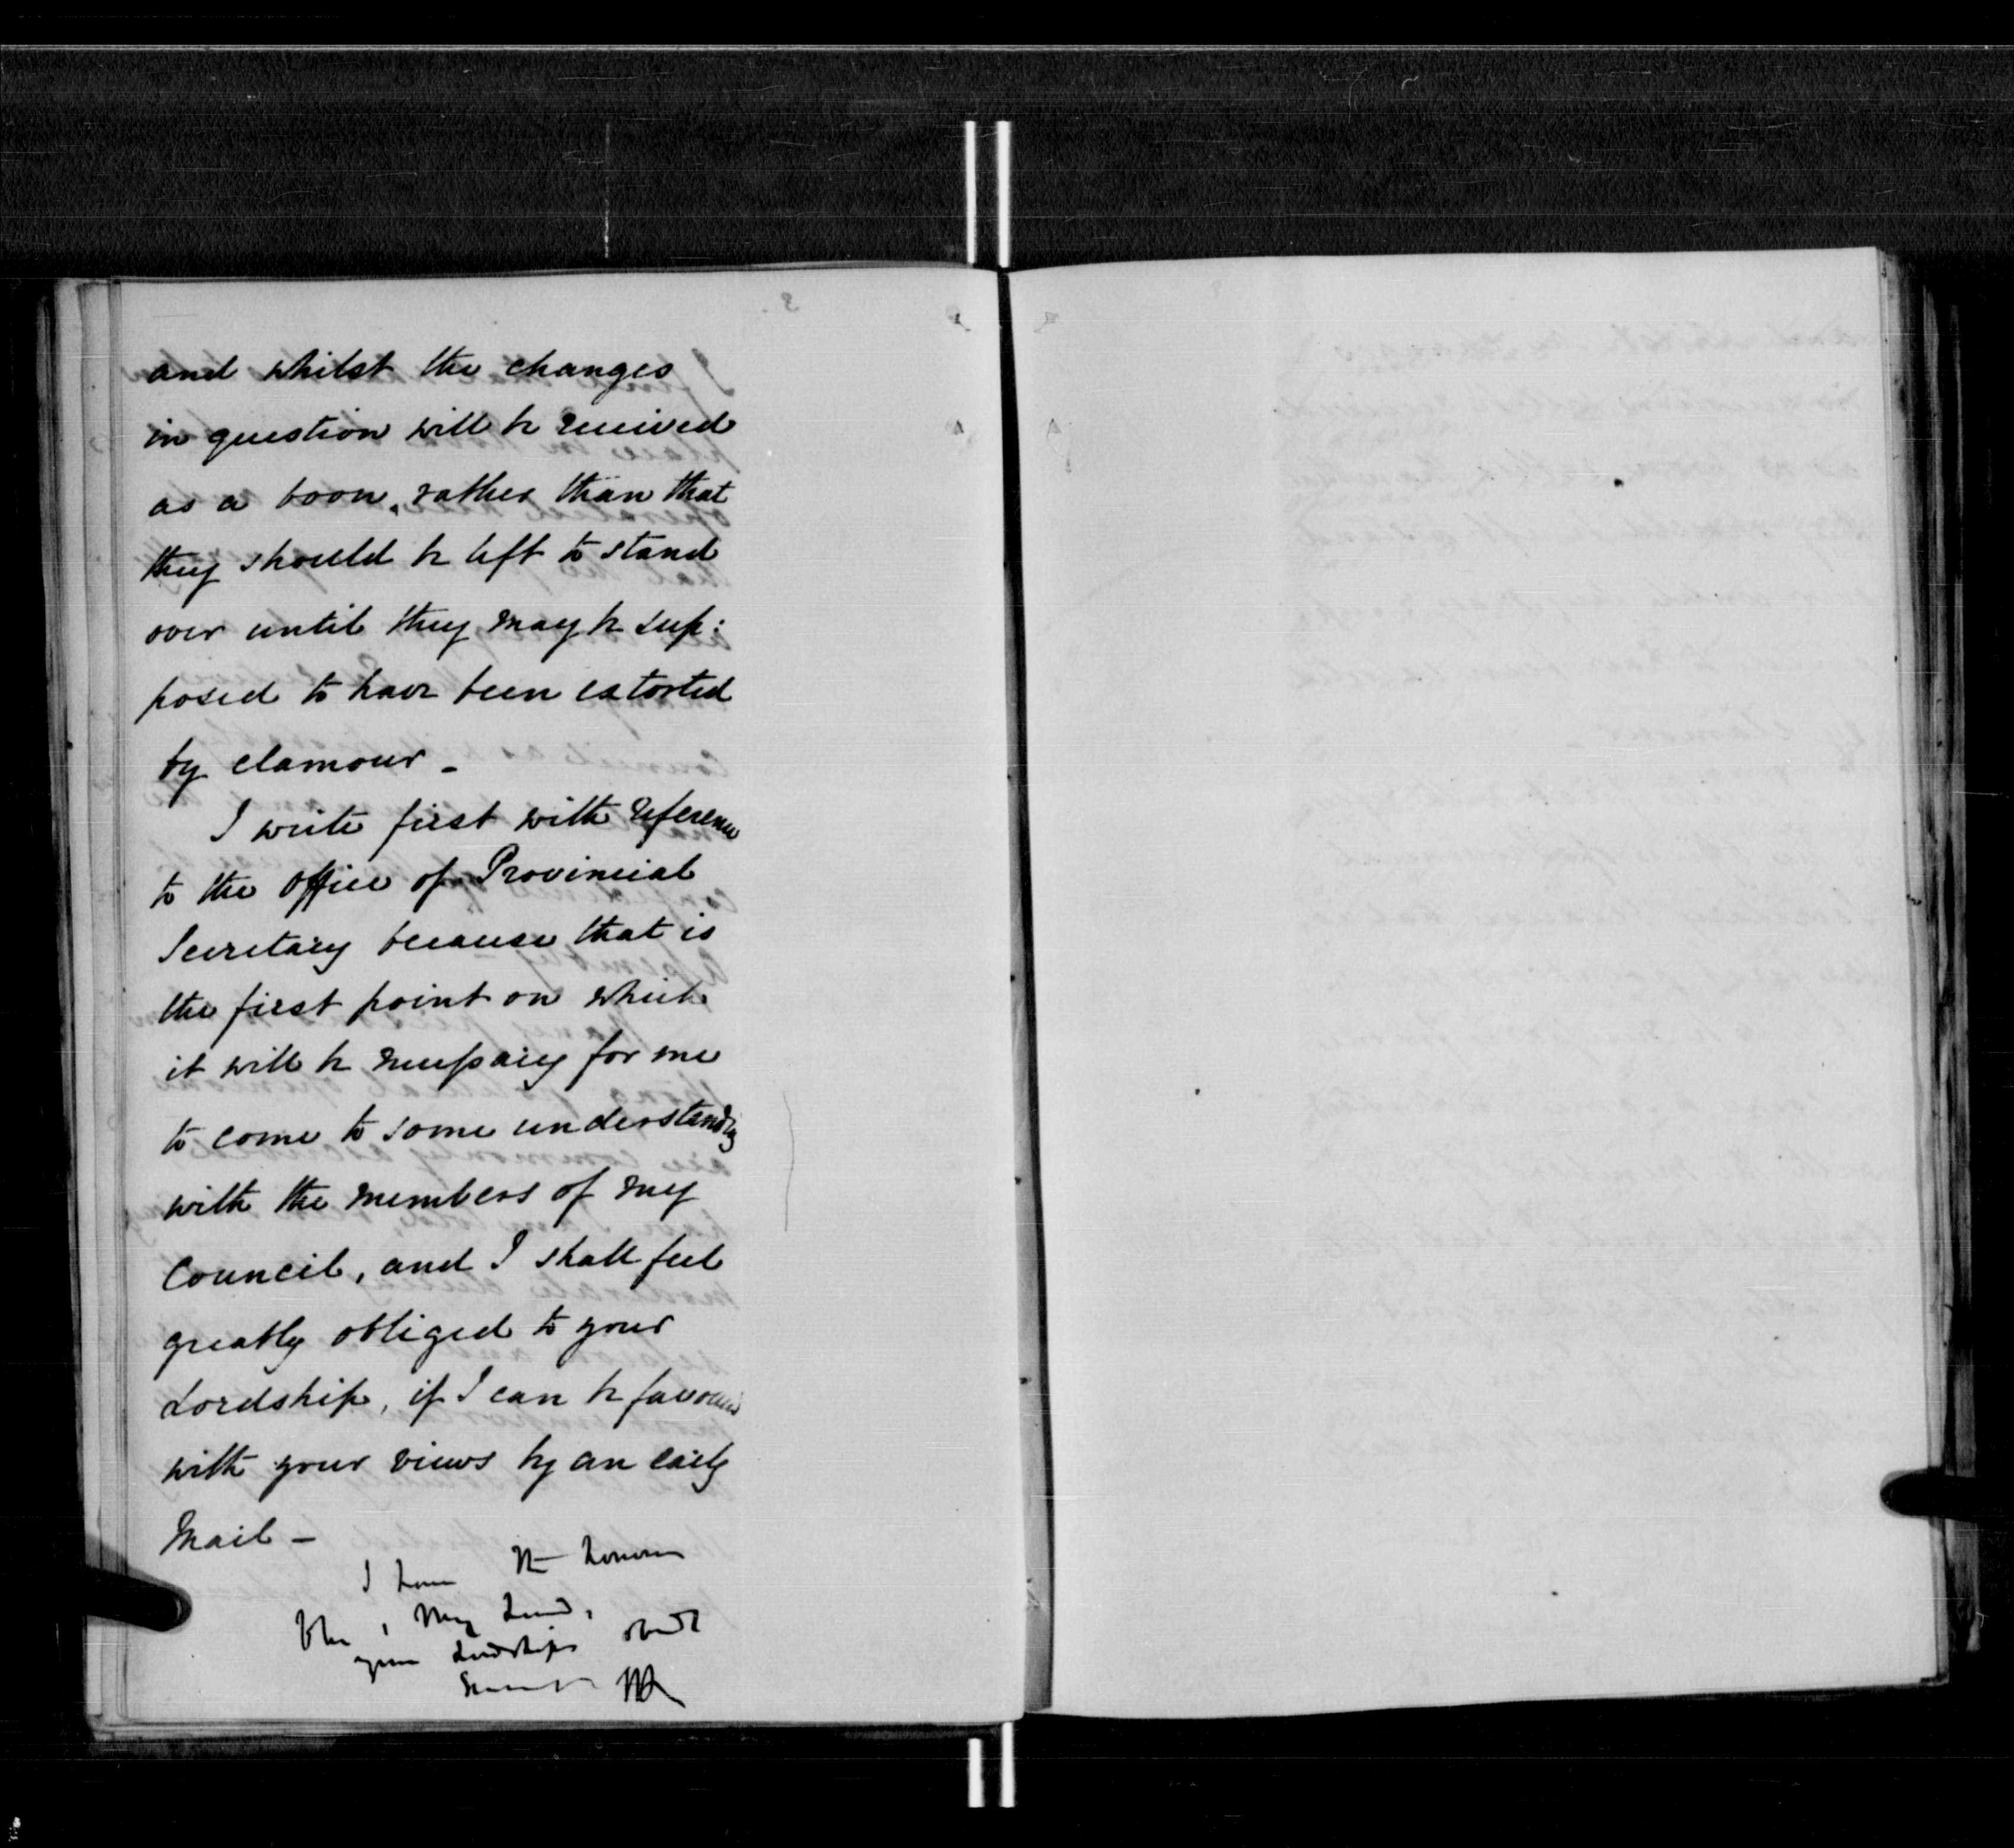 and whilst the changes
in question will be received
as a boon, rather than that
they should be left to stand
over until they may be sup:
posed to have been extorted
by clamour _
I write first with reference
to the office of Provincial
Secretary because that is
the first point on which
it will be necessary for me
to come to some understanding
with the members of my
Council, and I shall feel
greatly obliged to your
Lordship, if I can be favoured
with your views by an early
Mail –
I have the honour
to be, My Lord,
your Lordships obedt